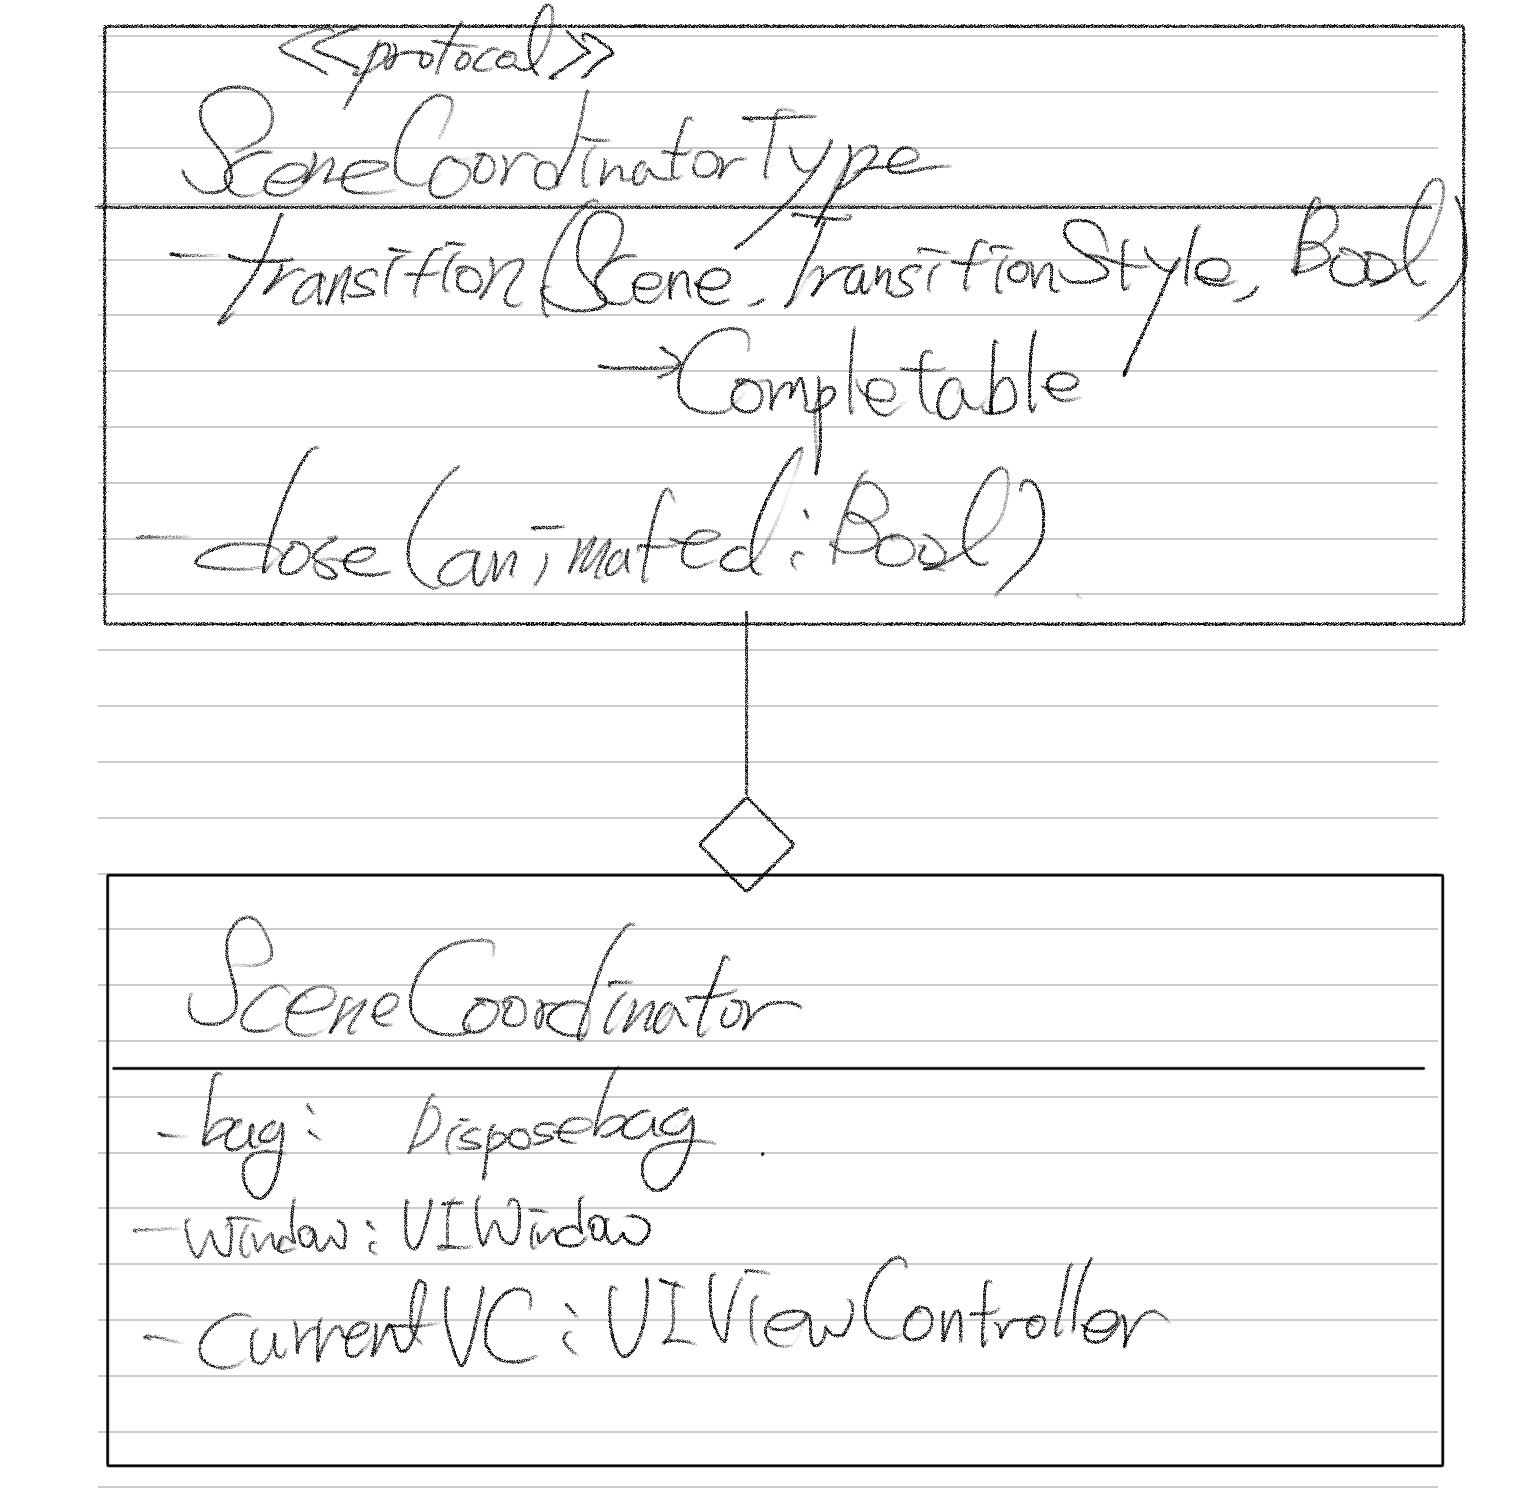 <<protocal>>
SceneCoordinatorType
- transition(Scene, TransitionStyle, Bool)
→ Completable
- close(animated: Bool)
SceneCoordinator
- bag: Disposebag
- window: UIWindow
- currentVC: UIViewController